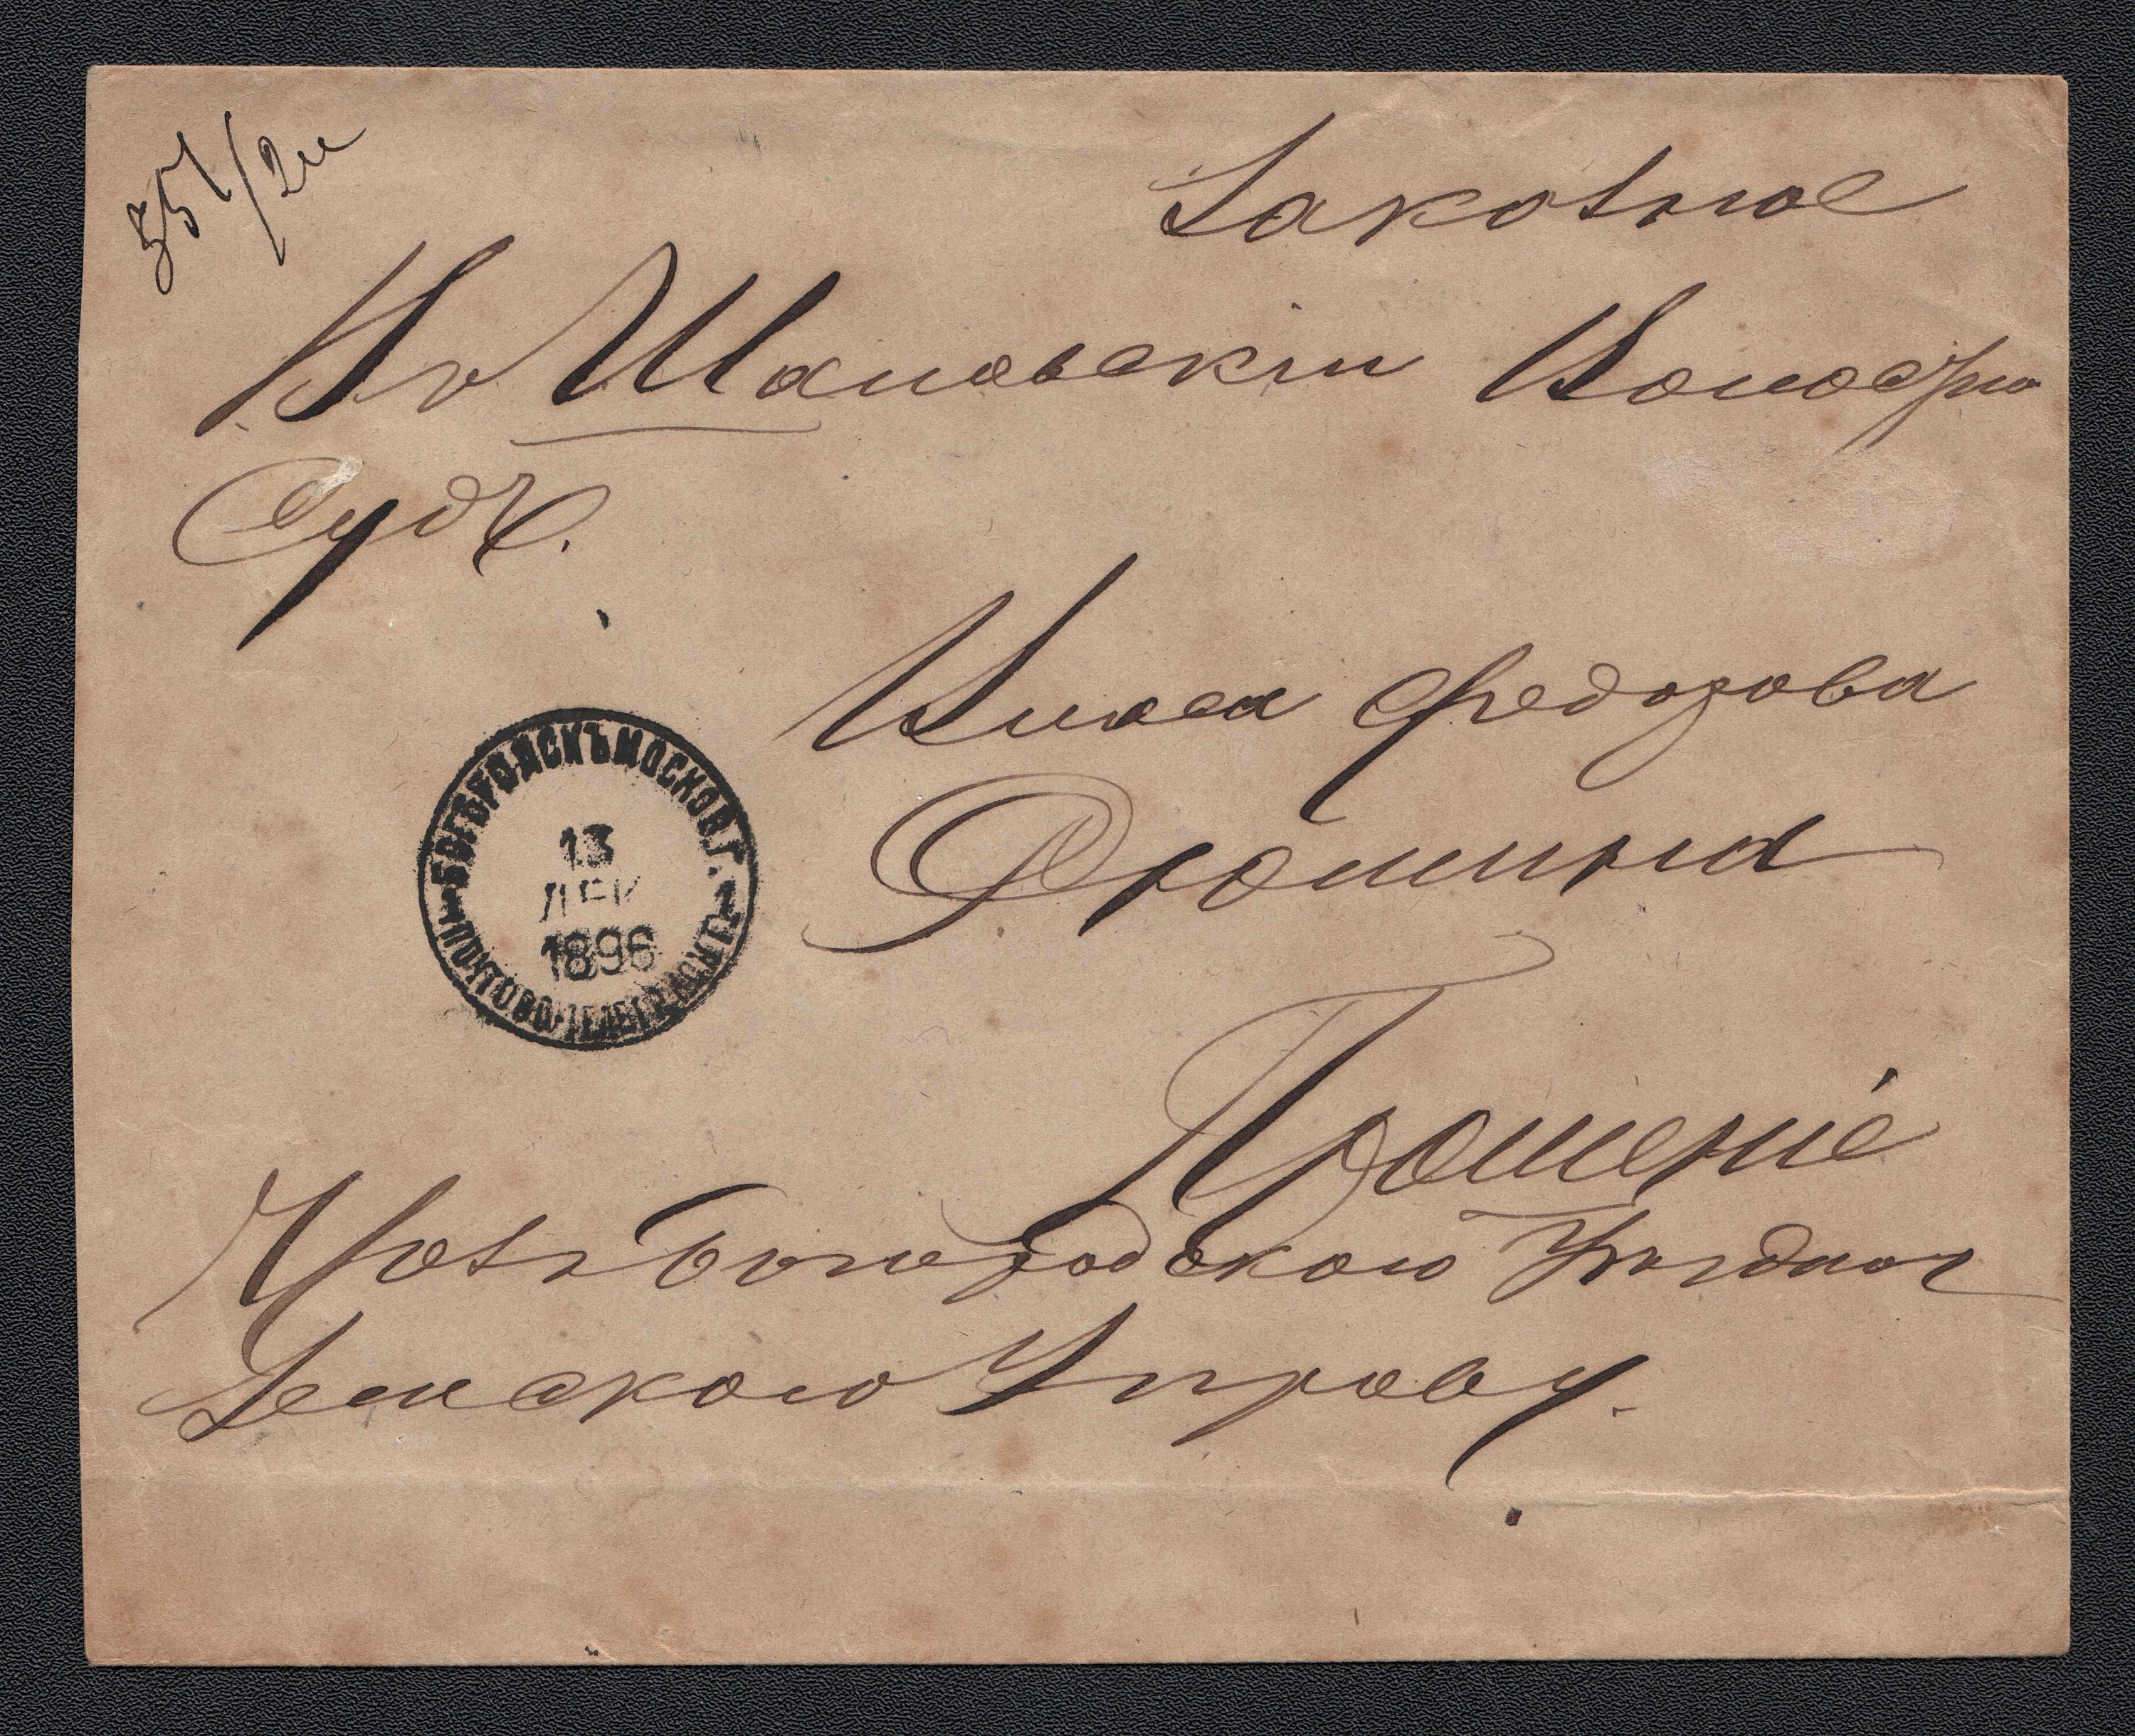 351/2м
Заказное
Въ Шаловскій Волостно
Судъ.
Власа Федорова
Фомина
Прошеніе
Чрезъ Богородскую Уѣздную
Земскую Управу.
БОГОРОДСКЪ МОСКОВ. Г.
13
ДЕК
1896
ПОЧТОВО-ТЕЛЕГР. КОНТ.